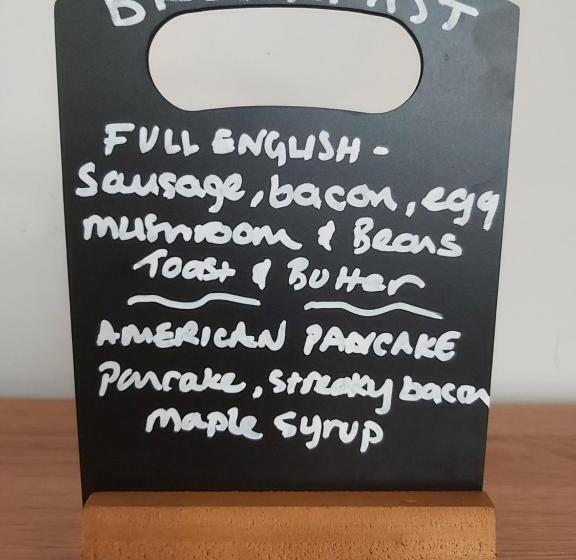 BREAKFAST
FULL ENGLISH -
Sausage, bacon, egg
mushroom & Beans
Toast & Butter
AMERICAN PANCAKE
Pancake, streaky bacon
maple syrup